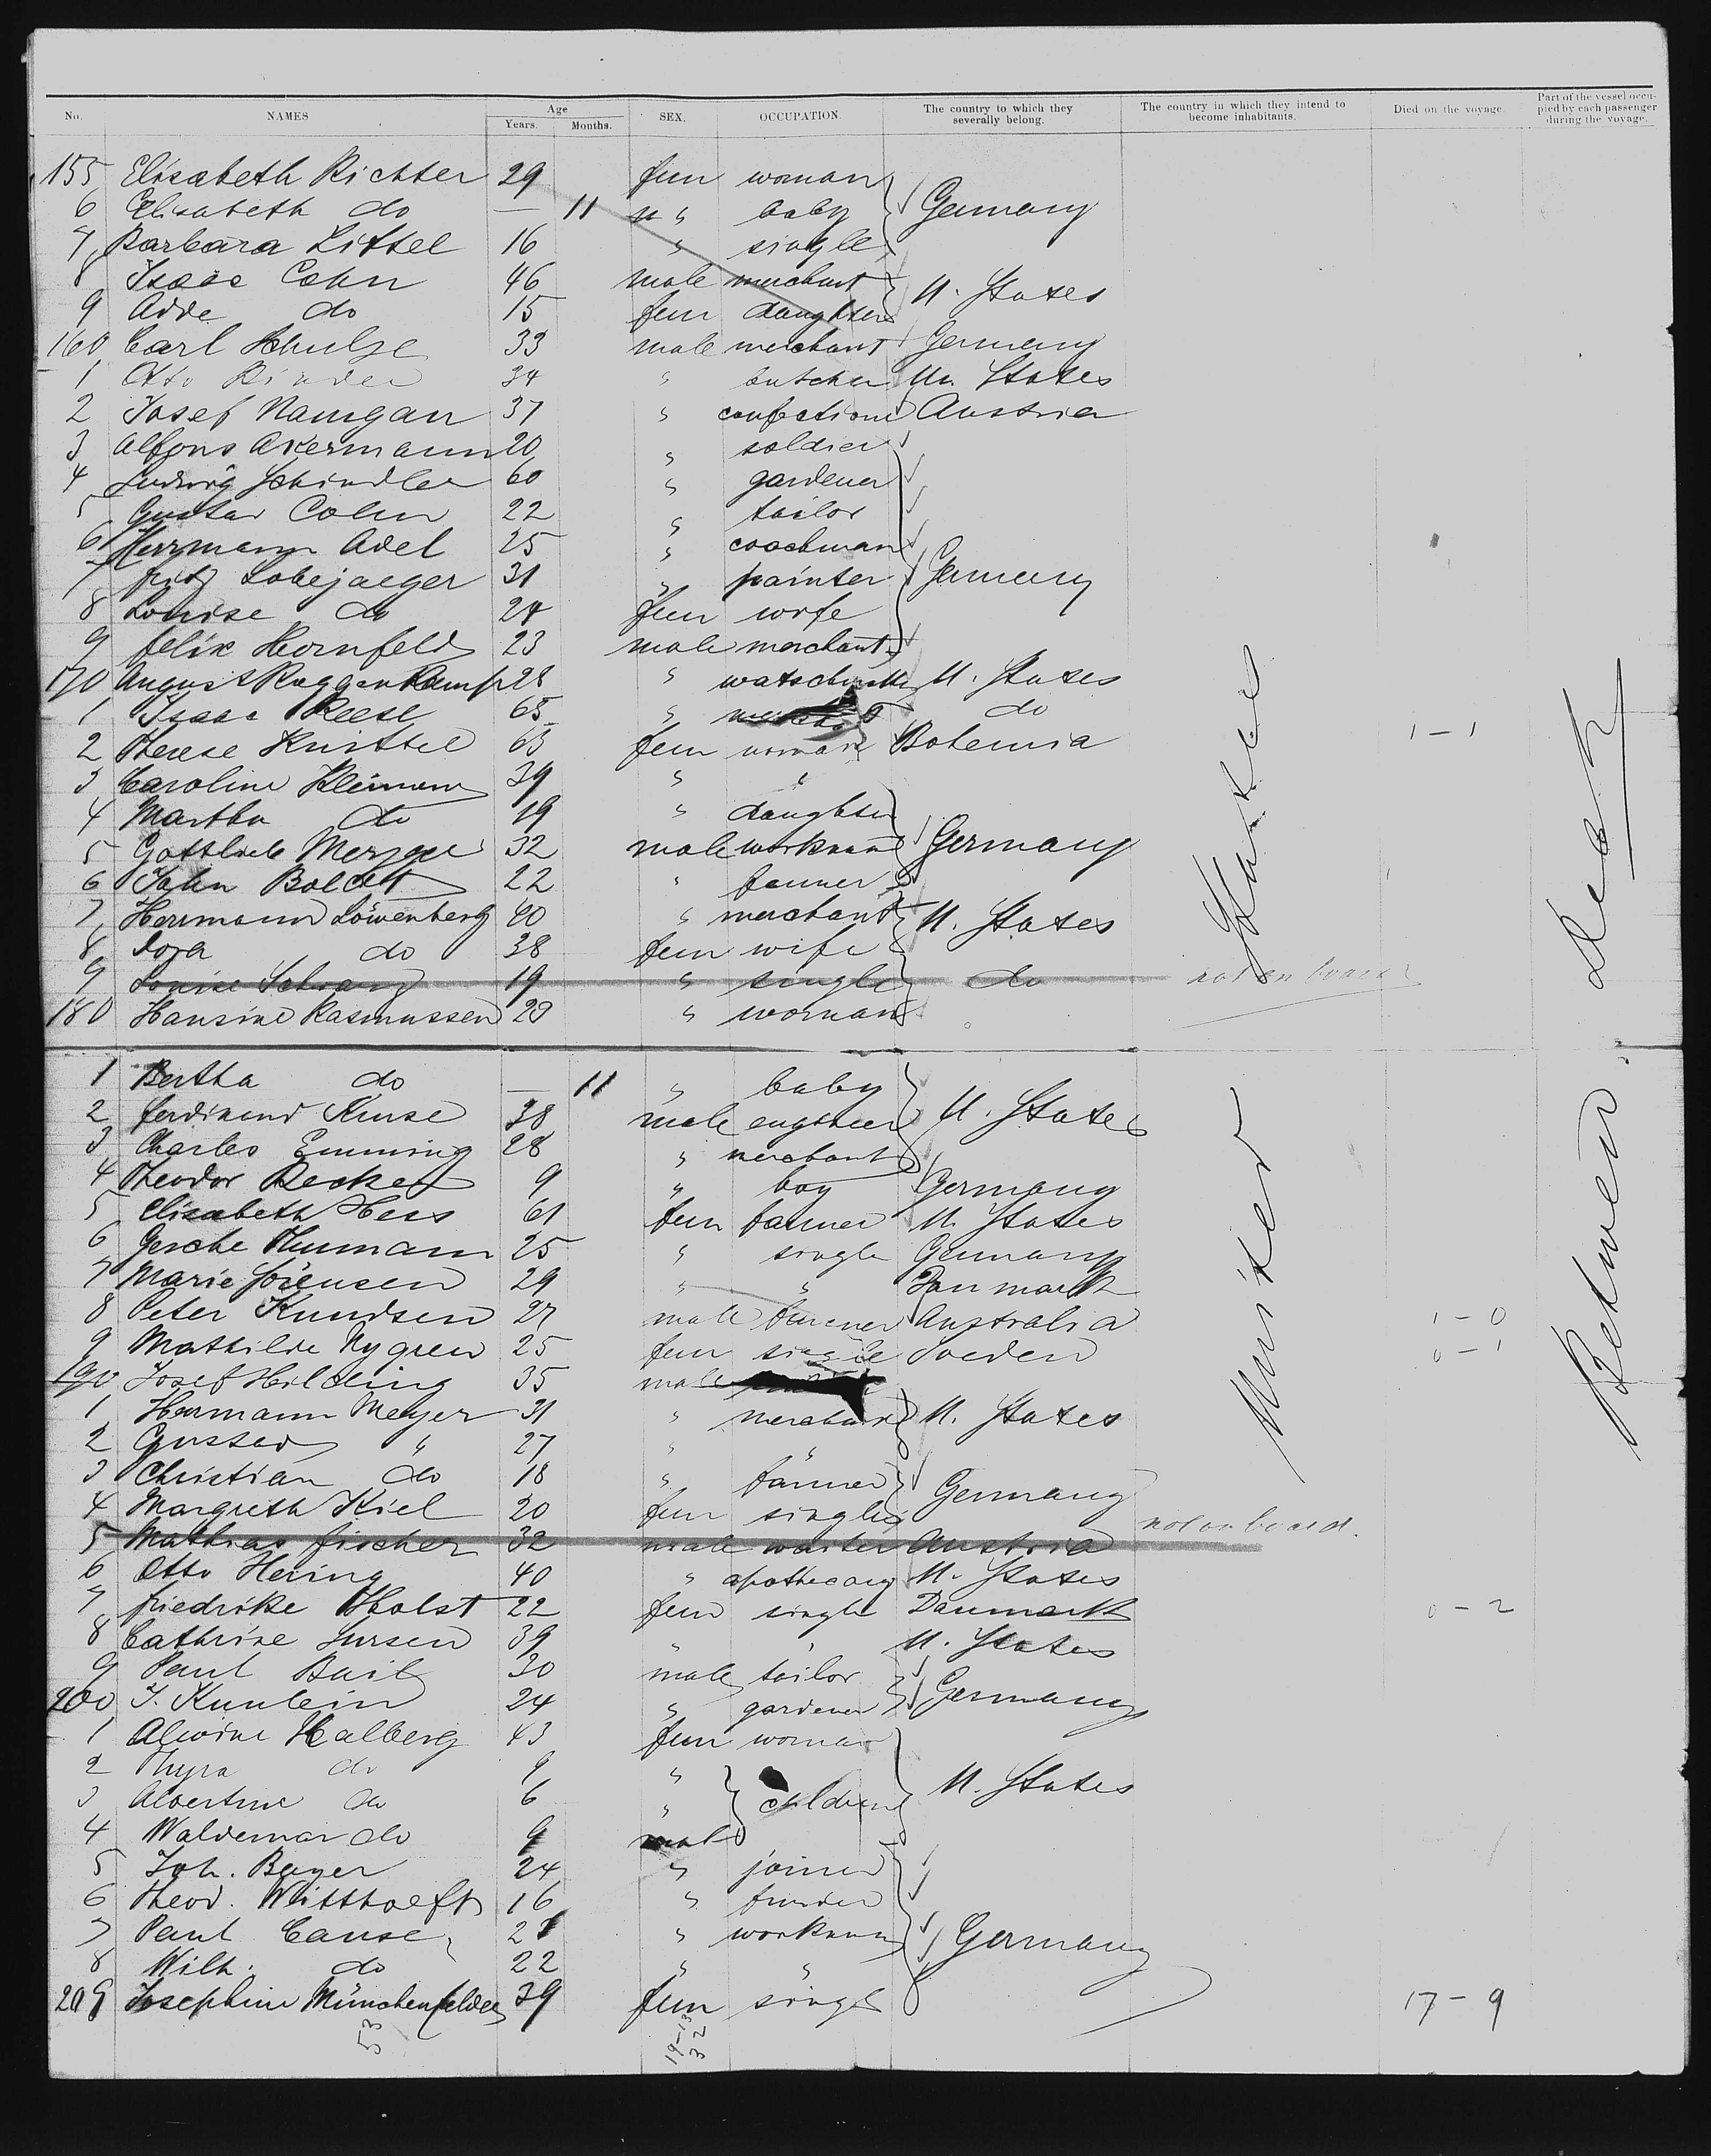 No. NAMES Age Years. Months. SEX. OCCUPATION. The country to which they severally belong. The country in which they intend to become inhabitants. Died on the voyage. Part of the vessel occupied by each passenger during the voyage.
155 Elisabeth Richter 29 fem woman
6 Elisabeth do — 11 " baby Germany
7 Barbara Littel 16 " single
8 Isaac Cohn 46 male merchant U. States
9 Adde do 15 fem daughter
160 Carl Schulze 33 male merchant Germany
1 Otto Rinder 34 " butcher Un. States
2 Josef Namgan 37 " confectione Austria
3 Alfons Akermann 20 " soldier
4 Ludwig Schindler 60 " gardener
5 Gustav Cohn 22 " tailor
6 Herrmann Adel 25 " coachman
7 Fritz Lobejaeger 31 " painter Germany
8 Louise do 24 fem wife
9 Felix Hornfeld 23 male merchant
170 August Roggenkamp 28 " U. States
1 Isaac Reese 65 " do
2 Therese Knittel 63 fem woman Bohemia 1-1
3 Caroline Kleimann 39 " "
4 Martha do 19 " daughter
5 Gottlieb Merzger 32 male workman Germany
6 John Boldt 22 " farmer
7 Herrmann Löwenberg 40 " merchant U. States
8 Dora do 38 fem wife
9 Louise Schwarz 19 " single do not on board
180 Hansine Rasmussen 29 " woman
1 Bertha do — 11 " baby
2 Ferdinand Kruse 38 male engineer U. States
3 Charles Emming 28 " merchant
4 Theodor Decker 9 " boy Germany
5 Elisabeth Hess 61 fem farmer U. States
6 Gesche Thumann 25 " single Germany
7 Marie Sörensen 29 " " Danmark
8 Peter Knudsen 27 male farmer Australia 1-0
9 Mathilde Nygren 25 fem single Sveden 0-1
190 Josef Hilding 35 male
1 Hermann Meyer 31 " merchant U. States
2 Gustav " 27 " "
3 Christian do 18 " farmer Germany
4 Margreth Kiel 20 fem single
5 Mathias Fischer 32 male waiter Austria not on board.
6 Otto Hering 40 " apothecary U. States
7 Friedrike Holst 22 fem single Danmark 0-2
8 Cathrine Jursen 39 " " U. States
9 Paul Bail 30 male tailor
200 J. Kunlein 24 " gardener Germany
1 Alwine Halberg 43 fem woman
2 Thyra do 9 "
3 Albertine do 6 " children U. States
4 Waldemar do 9 male
5 Joh. Bayer 24 " joiner
6 Theod. Witthoeft 16 "
7 Paul Cause 21 " workman Germany
8 Wilh. do 22 " "
209 Josephine Münchenfelder 39 fem singl 17-9
53
19-13
32
United States
Between Deck